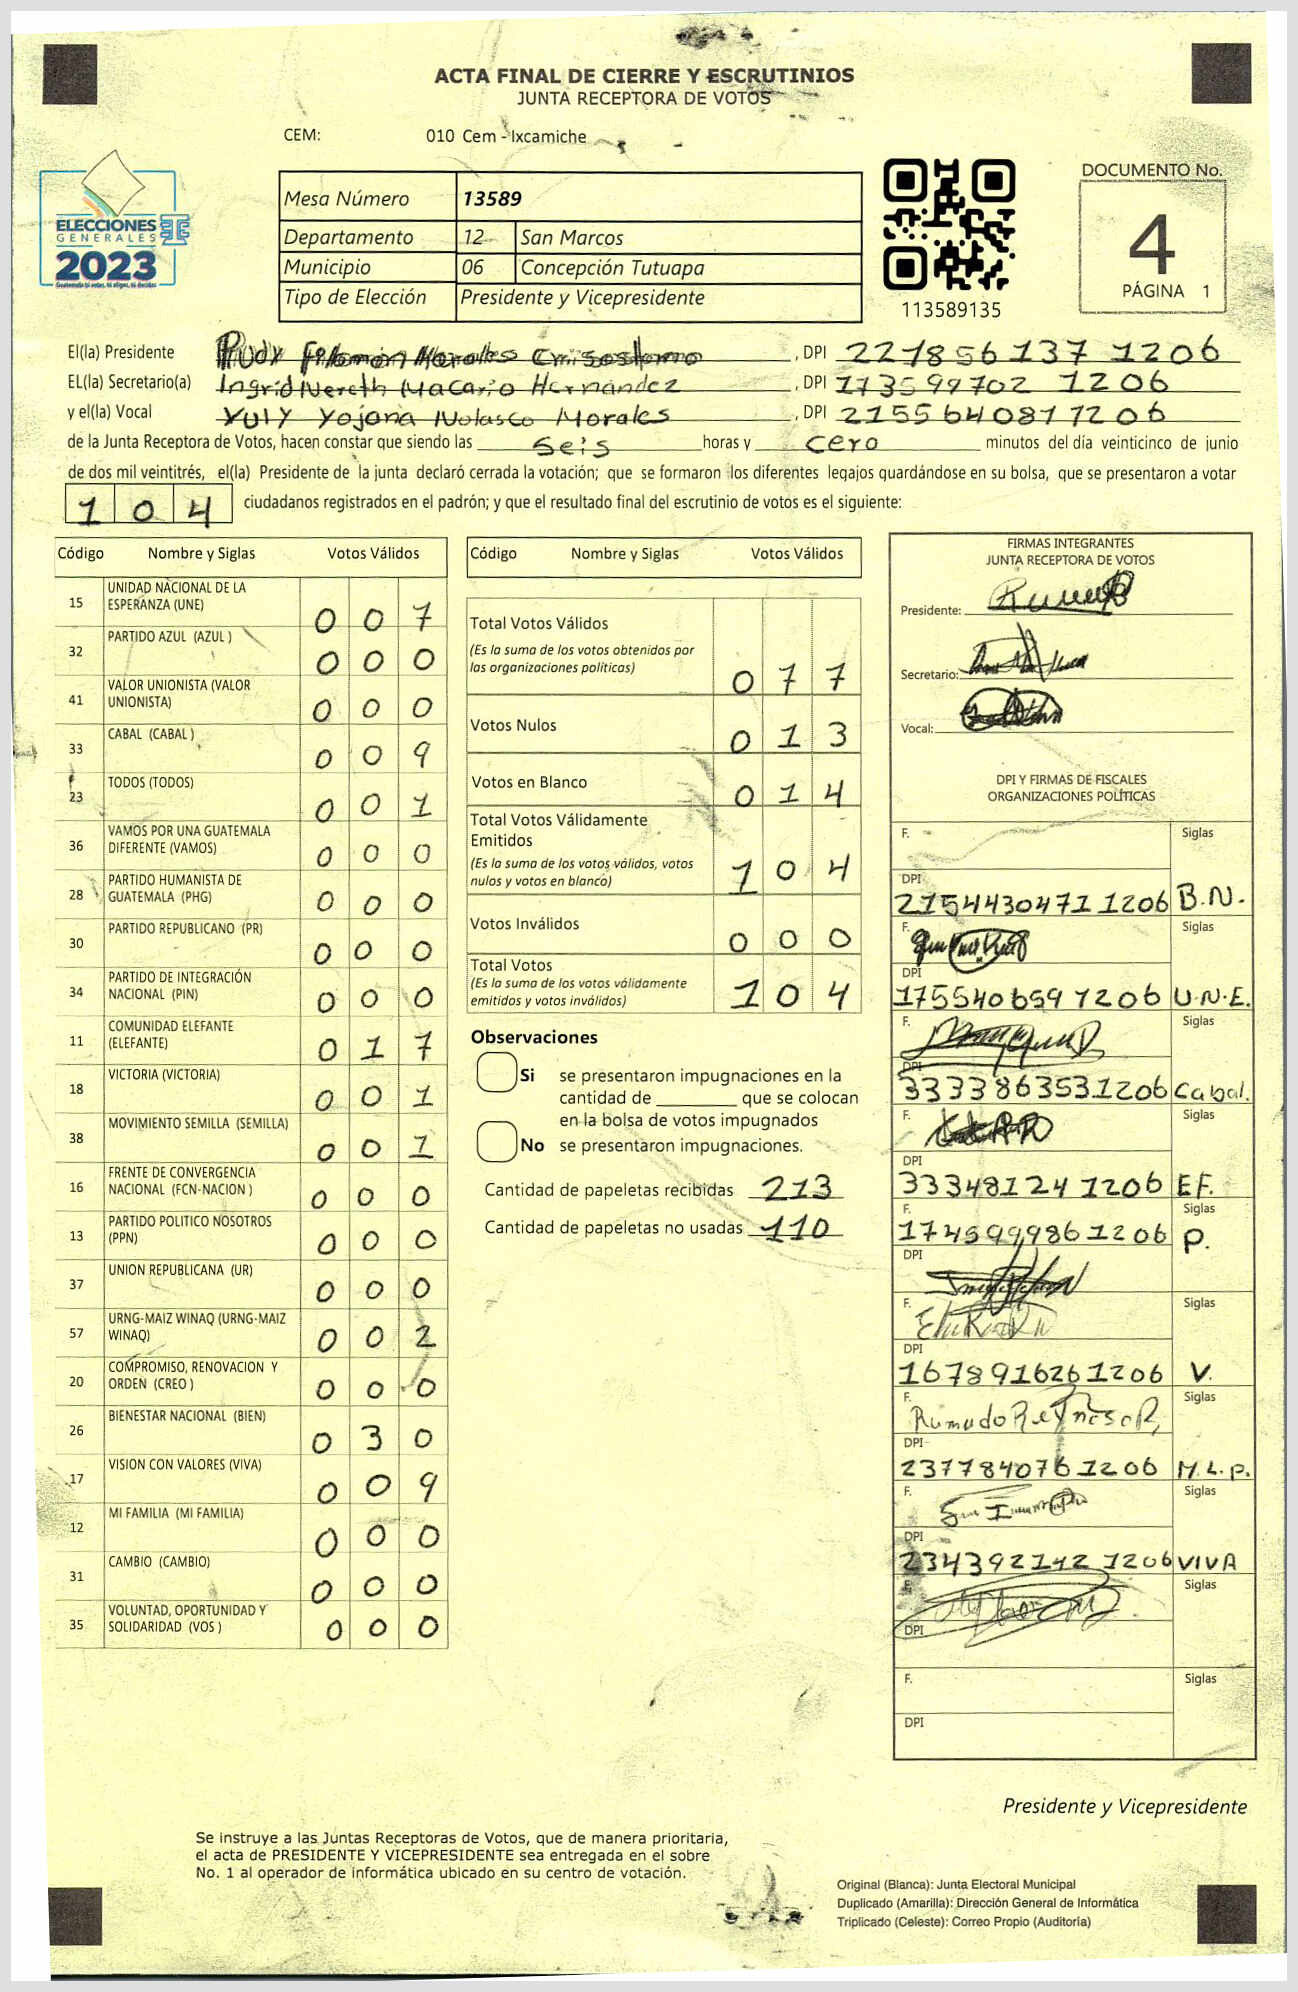 ACTA FINAL DE CIERRE Y ESCRUTINIOS
JUNTA RECEPTORA DE VOTOS
CEM: 010 Cem - Ixcamiche
ELECCIONES
GENERALES
2023
Guatemala tú votas, tú eliges, tú decides
Mesa Número 13589
Departamento 12 San Marcos
Municipio 06 Concepción Tutuapa
Tipo de Elección Presidente y Vicepresidente
113589135
DOCUMENTO No.
4
PÁGINA 1
El(la) Presidente Rudy Filomón Morales Crisostomo , DPI 221856137 1206
EL(la) Secretario(a) Ingrid Nereth Macario Hernández , DPI 173599702 1206
y el(la) Vocal Yuly Yojana Nolasco Morales , DPI 215564081 1206
de la Junta Receptora de Votos, hacen constar que siendo las seis horas y cero minutos del día veinticinco de junio
de dos mil veintitrés, el(la) Presidente de la junta declaró cerrada la votación; que se formaron los diferentes legajos quardándose en su bolsa, que se presentaron a votar
1 0 4 ciudadanos registrados en el padrón; y que el resultado final del escrutinio de votos es el siguiente:
Código Nombre y Siglas Votos Válidos
15 UNIDAD NACIONAL DE LA ESPERANZA (UNE) 0 0 7
32 PARTIDO AZUL (AZUL ) 0 0 0
41 VALOR UNIONISTA (VALOR UNIONISTA) 0 0 0
33 CABAL (CABAL ) 0 0 9
23 TODOS (TODOS) 0 0 1
36 VAMOS POR UNA GUATEMALA DIFERENTE (VAMOS) 0 0 0
28 PARTIDO HUMANISTA DE GUATEMALA (PHG) 0 0 0
30 PARTIDO REPUBLICANO (PR) 0 0 0
34 PARTIDO DE INTEGRACIÓN NACIONAL (PIN) 0 0 0
11 COMUNIDAD ELEFANTE (ELEFANTE) 0 1 7
18 VICTORIA (VICTORIA) 0 0 1
38 MOVIMIENTO SEMILLA (SEMILLA) 0 0 1
16 FRENTE DE CONVERGENCIA NACIONAL (FCN-NACION ) 0 0 0
13 PARTIDO POLITICO NOSOTROS (PPN) 0 0 0
37 UNION REPUBLICANA (UR) 0 0 0
57 URNG-MAIZ WINAQ (URNG-MAIZ WINAQ) 0 0 2
20 COMPROMISO, RENOVACION Y ORDEN (CREO ) 0 0 0
26 BIENESTAR NACIONAL (BIEN) 0 3 0
17 VISION CON VALORES (VIVA) 0 0 9
12 MI FAMILIA (MI FAMILIA) 0 0 0
31 CAMBIO (CAMBIO) 0 0 0
35 VOLUNTAD, OPORTUNIDAD Y SOLIDARIDAD (VOS ) 0 0 0
Código Nombre y Siglas Votos Válidos
Total Votos Válidos
(Es la suma de los votos obtenidos por
las organizaciones políticas) 0 7 7
Votos Nulos 0 1 3
Votos en Blanco 0 1 4
Total Votos Válidamente
Emitidos
(Es la suma de los votos válidos, votos
nulos y votos en blanco) 1 0 4
Votos Inválidos 0 0 0
Total Votos
(Es la suma de los votos válidamente
emitidos y votos inválidos) 1 0 4
Observaciones
Si se presentaron impugnaciones en la
cantidad de ________ que se colocan
en la bolsa de votos impugnados
No se presentaron impugnaciones.
Cantidad de papeletas recibidas 213
Cantidad de papeletas no usadas 110
FIRMAS INTEGRANTES
JUNTA RECEPTORA DE VOTOS
Presidente:
Secretario:
Vocal:
DPI Y FIRMAS DE FISCALES
ORGANIZACIONES POLÍTICAS
F. Siglas
DPI
2154430471 1206 B.N.
F. Siglas
DPI
175540659 1206 U.N.E.
F. Siglas
DPI
3333863531206 Cabal.
F. Siglas
DPI
333481241206 EF.
F. Siglas
174599986 1206 P.
DPI
F. Siglas
DPI
1678916261206 V.
F. Siglas
DPI
2377840761206 M.L.P.
F. Siglas
DPI
234392142 1206 VIVA
F. Siglas
DPI
F. Siglas
DPI
Presidente y Vicepresidente
Se instruye a las Juntas Receptoras de Votos, que de manera prioritaria,
el acta de PRESIDENTE Y VICEPRESIDENTE sea entregada en el sobre
No. 1 al operador de informática ubicado en su centro de votación.
Original (Blanca): Junta Electoral Municipal
Duplicado (Amarilla): Dirección General de Informática
Triplicado (Celeste): Correo Propio (Auditoría)